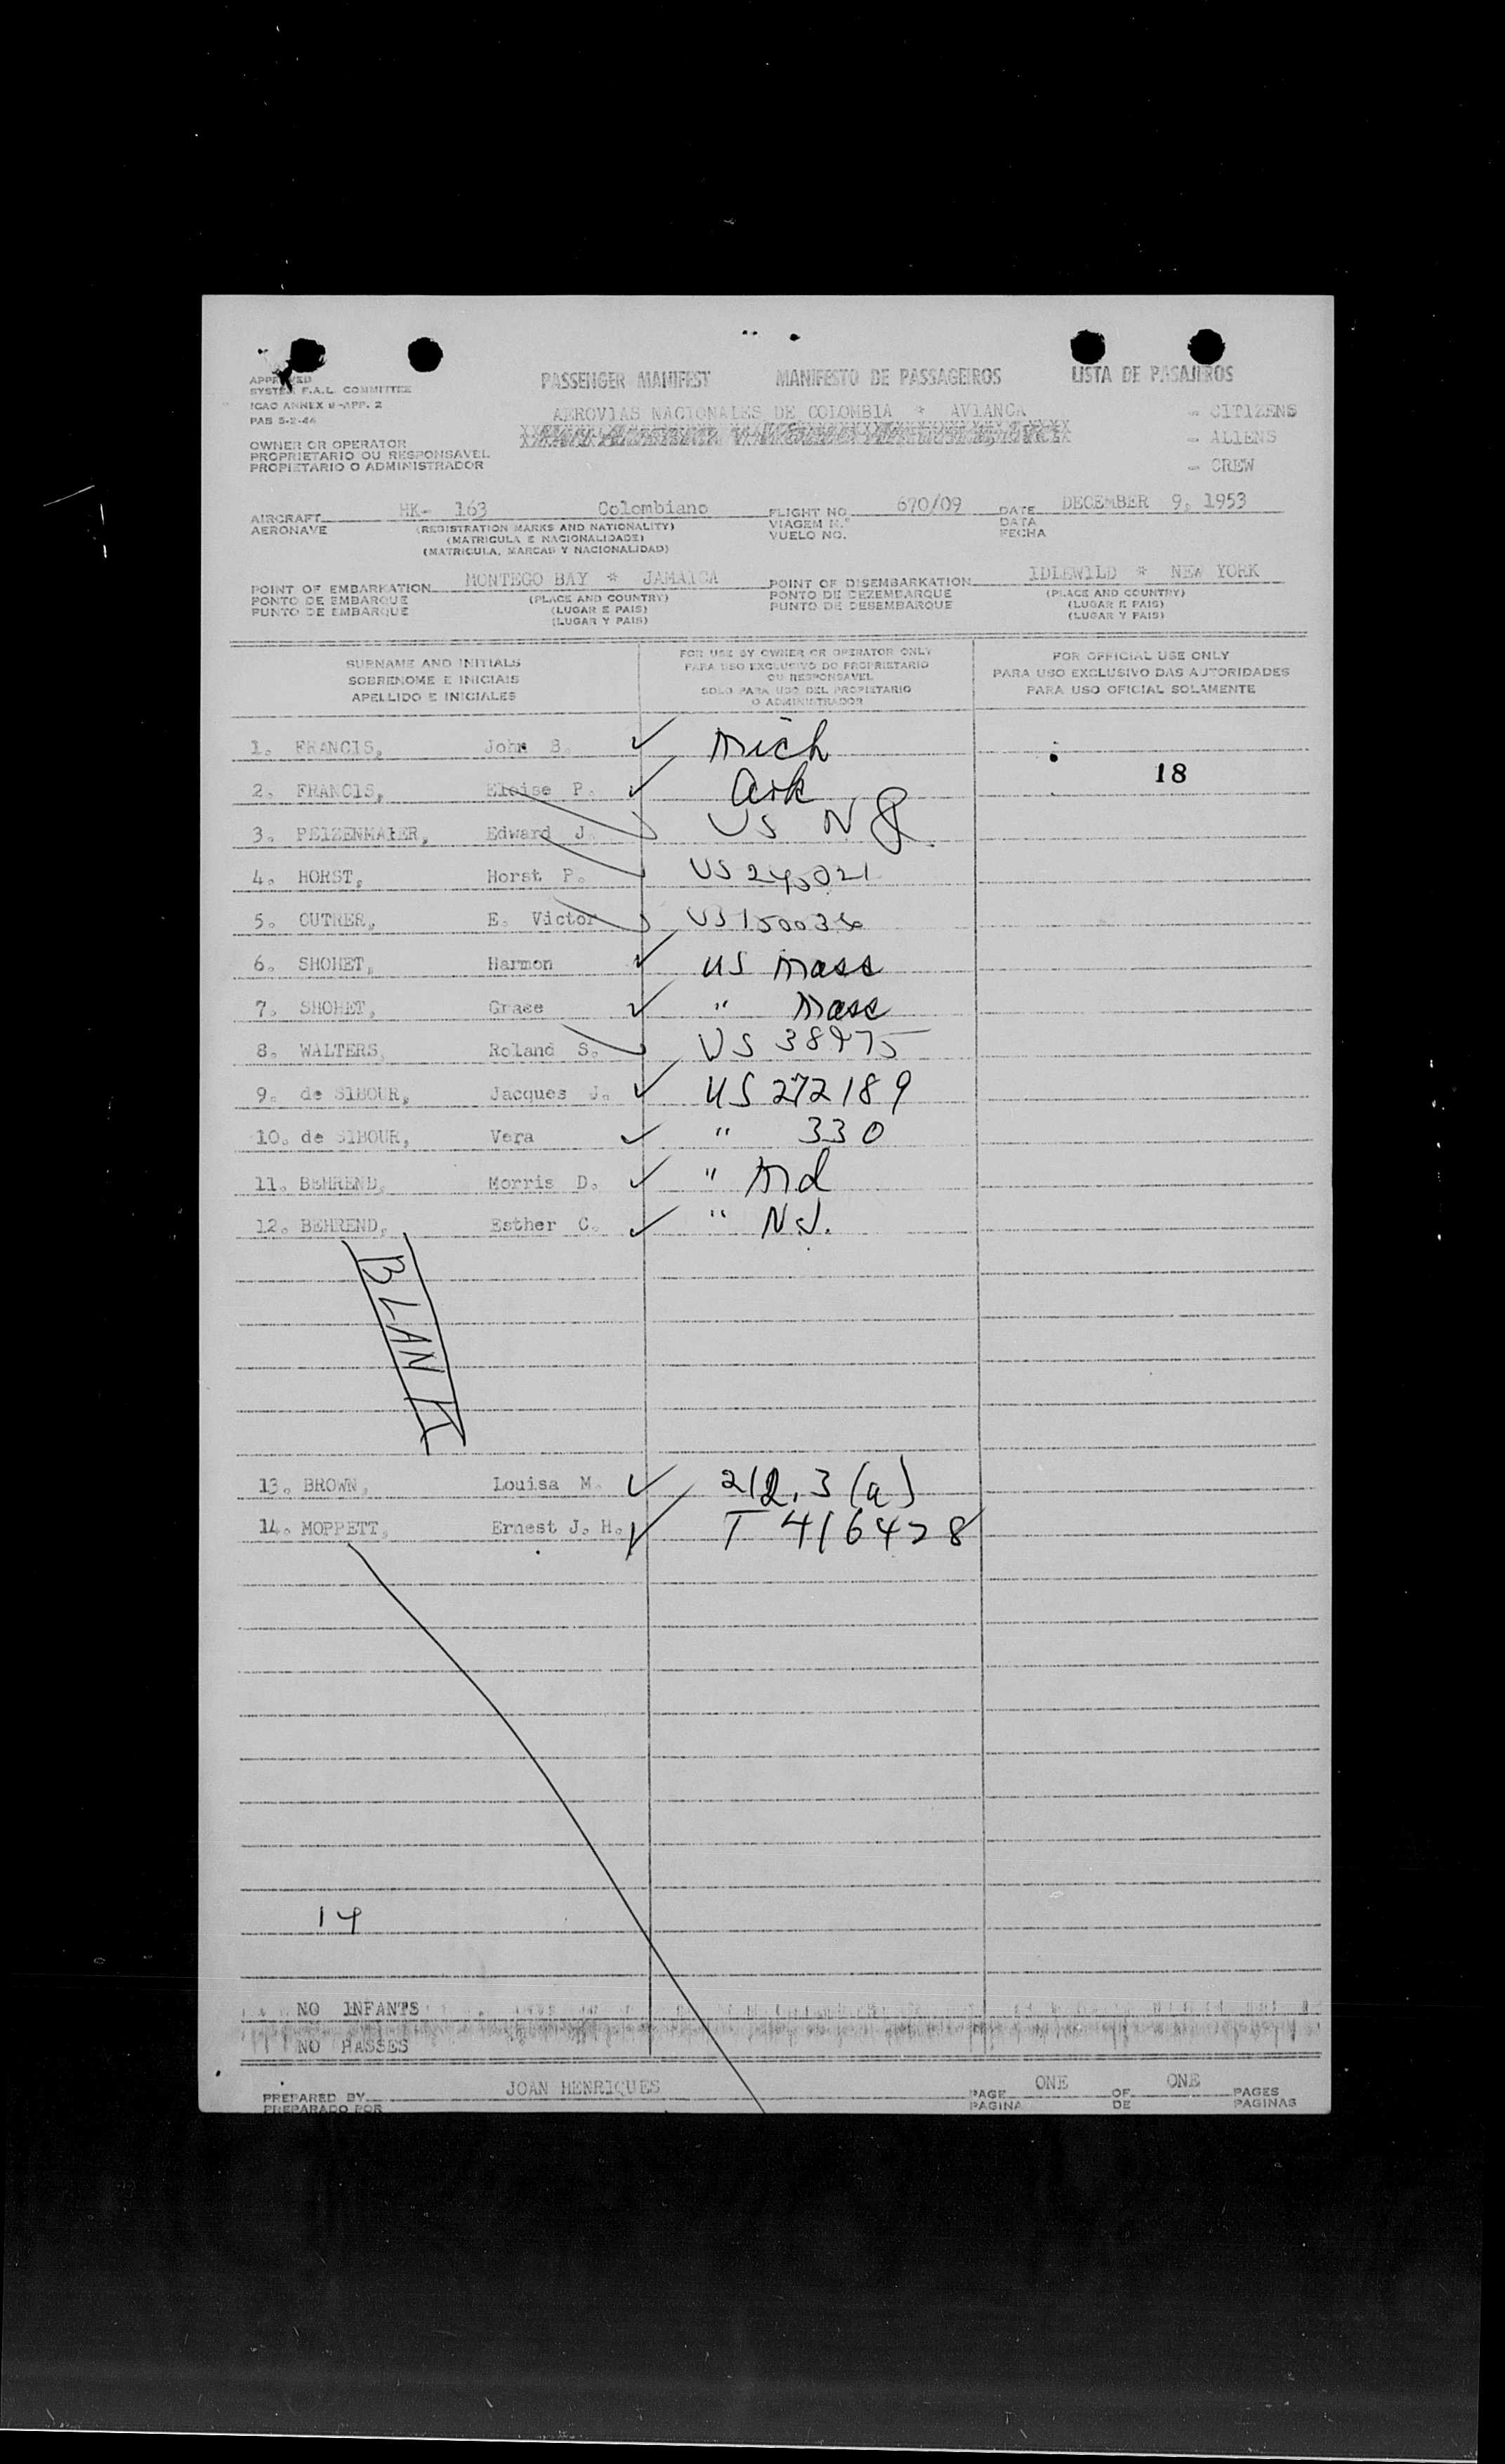 APPROVED
SYSTEM F.A.L. COMMITTEE
ICAO ANNEX 9-APP. 2
PAB 5-2-44
PASSENGER MANIFEST MANIFESTO DE PASSAGEIROS LISTA DE PASAJEROS
AEROVIAS NACIONALES DE COLOMBIA * AVIANCA
- CITIZENS
- ALIENS
- CREW
OWNER OR OPERATOR
PROPRIETARIO OU RESPONSAVEL
PROPIETARIO O ADMINISTRADOR
AIRCRAFT HK- 163 Colombiano FLIGHT NO 670/09 DATE DECEMBER 9, 1953
AERONAVE (REGISTRATION MARKS AND NATIONALITY) VIAGEM N.° DATA
(MATRICULA E NACIONALIDADE) VUELO NO. FECHA
(MATRICULA, MARCAS Y NACIONALIDAD)
POINT OF EMBARKATION MONTEGO BAY * JAMAICA POINT OF DISEMBARKATION IDLEWILD * NEW YORK
PONTO DE EMBARQUE (PLACE AND COUNTRY) PONTO DE DEZEMBARQUE (PLACE AND COUNTRY)
PUNTO DE EMBARQUE (LUGAR E PAIS) PUNTO DE DESEMBARQUE (LUGAR E PAIS)
(LUGAR Y PAIS) (LUGAR Y PAIS)
SURNAME AND INITIALS
SOBRENOME E INICIAIS
APELLIDO E INICIALES
FOR USE BY OWNER OR OPERATOR ONLY
PARA USO EXCLUSIVO DO PROPRIETARIO
OU RESPONSAVEL
SOLO PARA USO DEL PROPIETARIO
O ADMINISTRADOR
FOR OFFICIAL USE ONLY
PARA USO EXCLUSIVO DAS AUTORIDADES
PARA USO OFICIAL SOLAMENTE
1. FRANCIS, John B. ✓ Mich
18
2. FRANCIS, Eloise P. ✓ Ark
3. PEIZENMAIER, Edward J. US N
4. HORST, Horst P. US 245021
5. OUTRER, E. Victor US 150036
6. SHOHET, Harmon ✓ US Mass
7. SHOHET, Grace ✓ " Mass
8. WALTERS, Roland S. US 38975
9. de SIBOUR, Jacques J. ✓ US 272189
10. de SIBOUR, Vera ✓ " 330
11. BEHREND, Morris D. ✓ " Md
12. BEHREND, Esther C. ✓ " N.J.
BLANK
13. BROWN, Louisa M. ✓ 212.3(a)
14. MOPPETT, Ernest J. H. ✓ T 416428
14
NO INFANTS
NO PASSES
PREPARED BY JOAN HENRIQUES PAGE ONE OF ONE PAGES
PREPARADO POR PAGINA DE PAGINAS